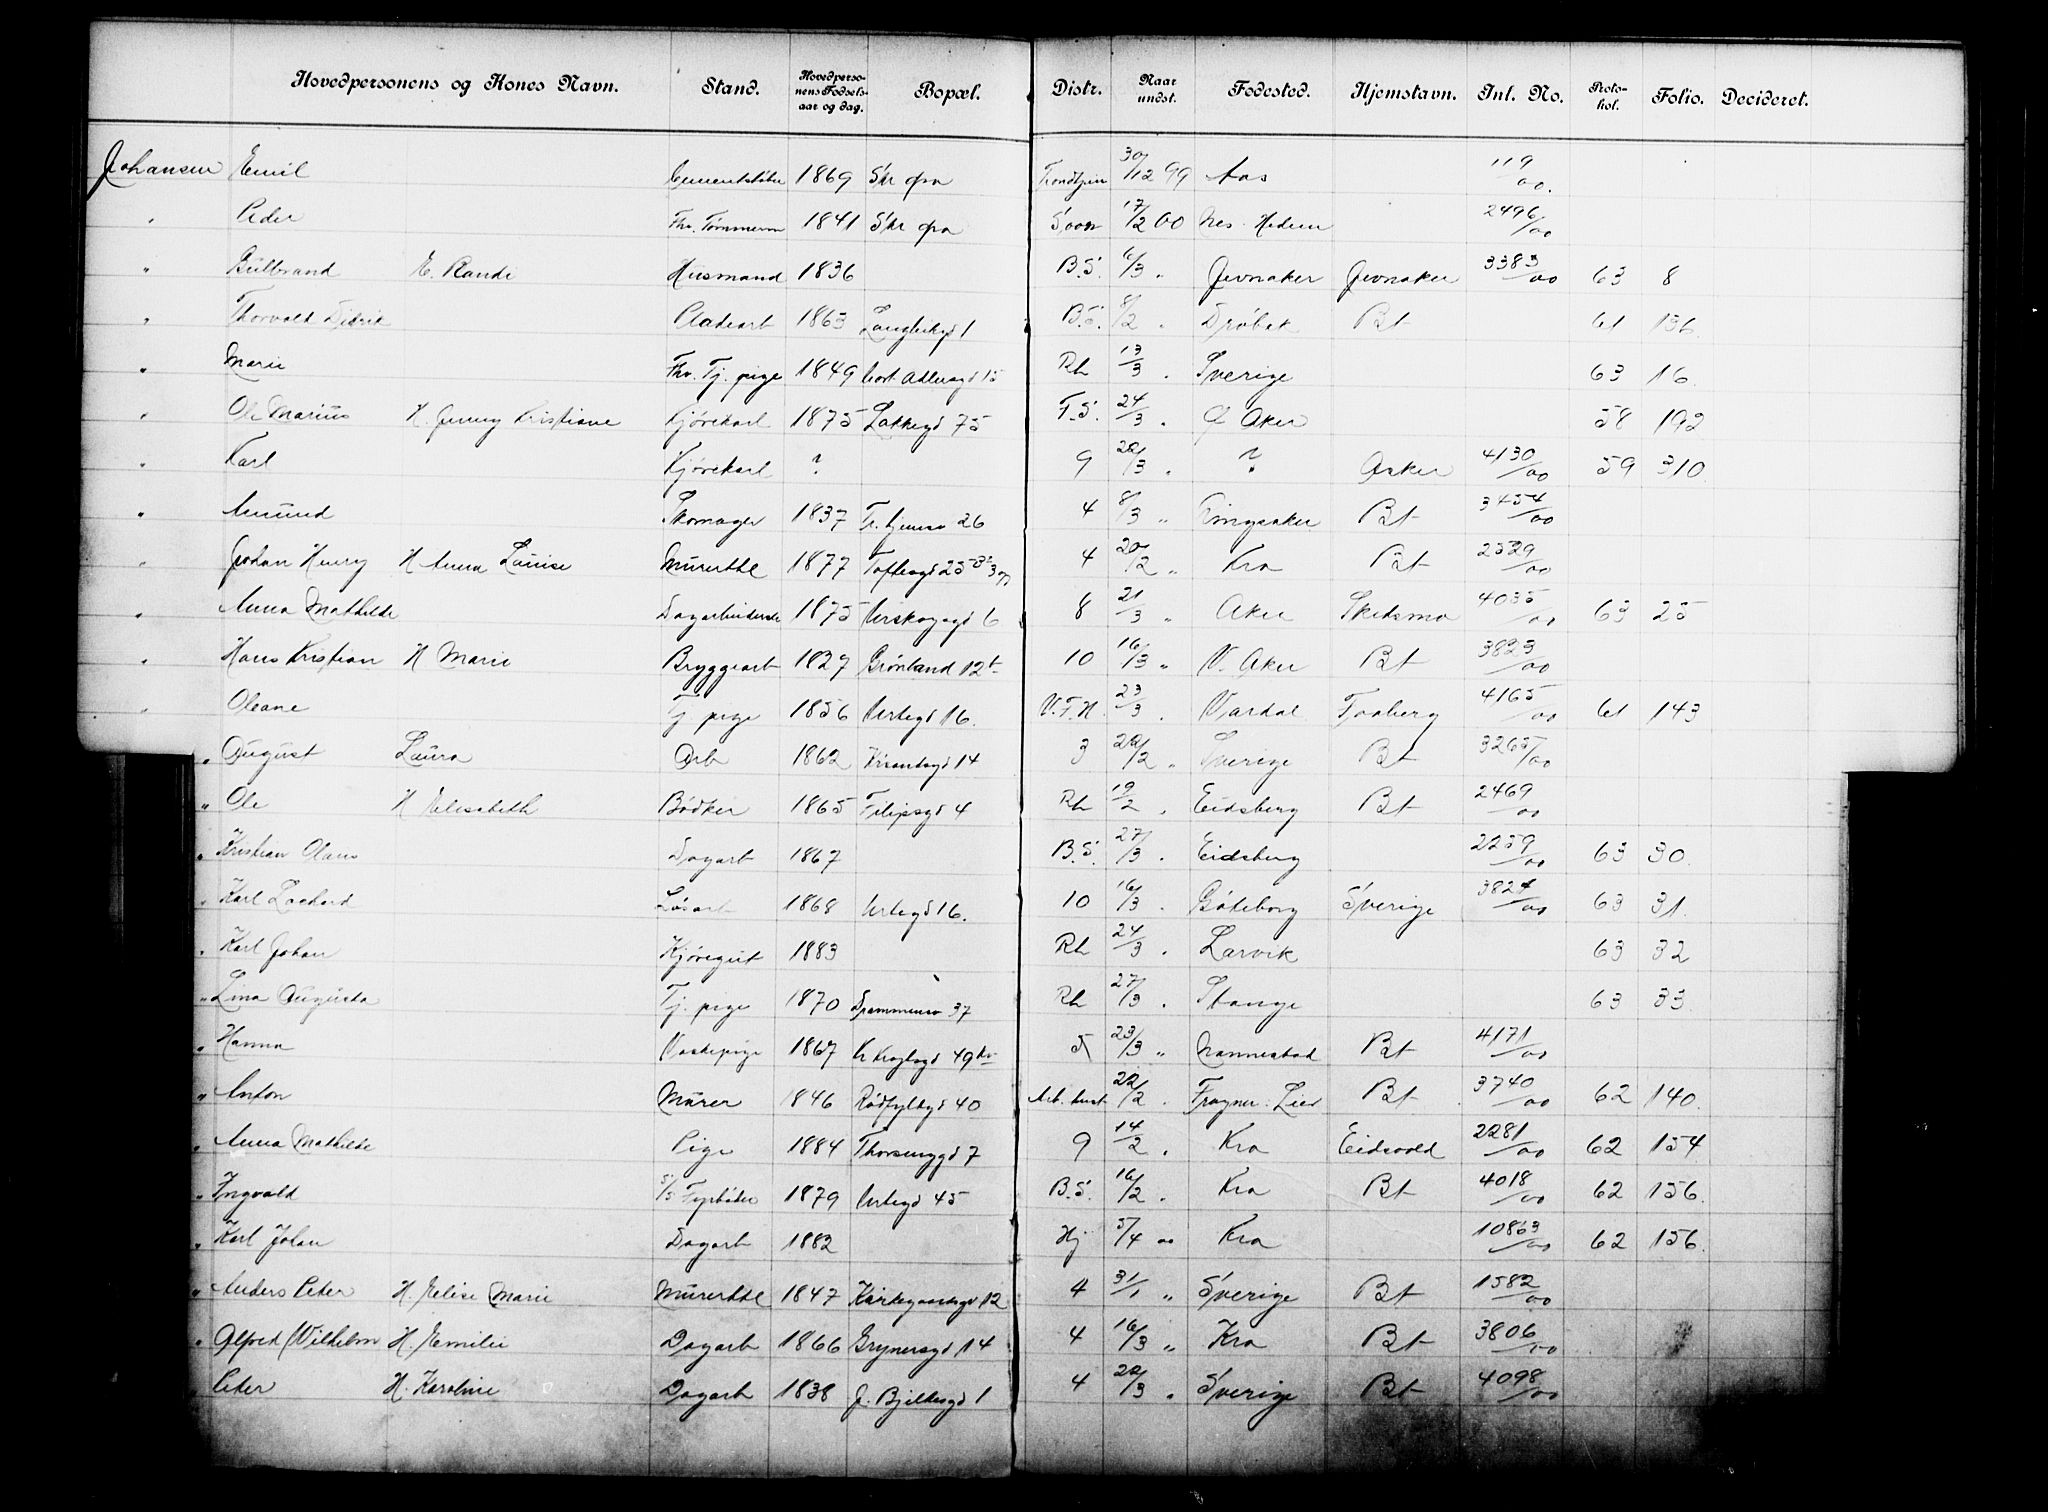 Hovedpersonens og Kones Navn. Stand. Hovedperso-nens Fødsels-aar og dag. Bopæl. Distr. Naar undst. Fødested. Hjemstavn. Inl. No. Proto-kol. Folio. Decideret.
Johansen Emil 1869 Skr fra Trondhjem 30/12 99 Aas 119/00.
" Peder Fhv. Tømmerm 1841 Skr fra 17/2 00 Nes. Hedem 2496/00
" Gulbrand E. Randi Husmand 1836 B.S. 6/3 " Jevnaker Jevnaker 3383/00 63 8
" Thorvald Didrik Pladearb 1863 Langbrkgd 1 B.S. 8/2 " Drøbak Bt 61 136
" Marie Fhv. Tj. pige 1849 Cort Adlersgd 15 Rh 13/3 " Sverige 63 16
" Ole Marius H. Jenny Kristiane Kjørekarl 1875 Lakkegd 75 F.S. 24/3 " Ø Aker 58 192
" Karl Kjørekarl ? 9 22/3 " ? Asker 4130/00 59 310
" Amund Skomager 1837 Tr.hjemsv 26 4 8/3 " Ringsaker Bt 3454/00
" Johan Henry H Anna Louise Murerhdl 1877 Toftesgd 25 4 20/2 " Kra Bt 2529/00
" Anna Mathilde Dagarbeiderske 1875 6 8 21/3 " Aker Skedsmo 4035/00 63 25
" Hans Kristian H Marie Bryggearb 1827 Grønland 12 10 16/3 " V. Aker Bt 3823/00
" Oleane Tj pige 1856 Urtegd 16. V.F.H. 23/3 " Vardal Faaberg 4165/00 61 143
" August Laura Arb 1862 Krsandsgd 14 3 22/2 " Sverige Bt 3265/00
" Ole H Elisabeth Bødker 1865 Filipsgd 4 Rh 19/2 " Eidsberg Bt 2469/00
" Kristian Olaus Dagarb 1867 B.S. 27/3 " Eidsberg 2259/00 63 30.
" Karl Løsarb 1868 Urtegd 16. 10 16/3 " Göteborg Sverige 3824/00 63 31.
" Karl Johan Kjøregut 1883 Rh 24/3 " Larvik 63 32
" Lina Augusta Tj. pige 1870 Drammensv 37 Rh 27/3 " Stange 63 33
" Hanna Vaskepige 1867 49 5 23/3 " Nannestad Bt 4171/00
" Anton Murer 1846 Rødfyldgd 40 Arb. anst. 22/2 " Frogner. Lier Bt 3740/00 62 140.
" Anna Mathilde Pige 1884 7 9 14/2 " Kra Eidsvold 2281/00 62 154
" Ingvald S/S Fyrbøder 1879 Urtegd 45 B.S. 16/2 " Kra Bt 4018/00 62 156.
" Karl Johan Dagarb 1882 Hj 5/4 00 Kra 10863/00 62 156.
" Anders Peter H. Elise Marie Murerhdl 1847 Kirkegaardsgd 12 4 31/1 " Sverige Bt 1582/00
" Alfred Wilhelm H. Emilie Dagarb 1866 Grynersgd 14 4 16/3 " Kra Bt 3806/00
" Peder H. Karoline Dagarb 1838 J. Bjelkesgd 1 4 22/3 " Sverige Bt 4098/00